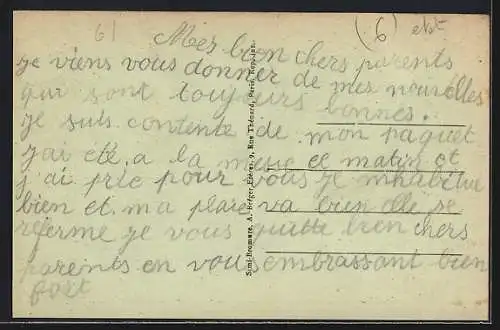 61 (6)
Mes bien chers parents
je viens vous donner de mes nouvelles
qui sont toujours bonnes.
je suis contente de mon paquet
j'ai été a la messe ce matin et
j'ai prie pour vous je mhabitue
bien et ma plaie va bien elle se
referme je vous quitte bien chers
parents en vous embrassant bien
fort
Simi-Bromure, A. Breger Frères, 9, Rue Thénard, Paris.